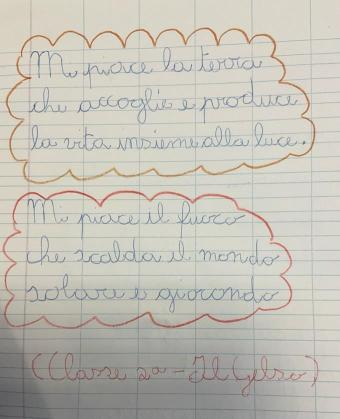 Mi piace la terra
che accoglie e produce
la vita insieme alla luce.
Mi piace il fuoco
che scalda il mondo
solare e giocondo
(Classe 2a - Il Gelso)